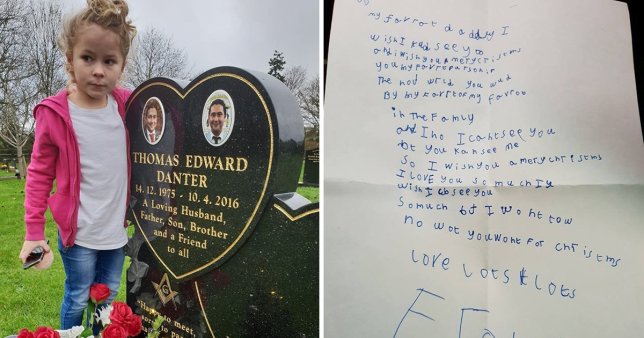 THOMAS EDWARD
DANTER
14. 12. 1975 - 10. 4. 2016
A Loving Husband,
Father, Son, Brother
and a Friend
to all
"Happy to meet,
my farrot daddy I
wish I cod see you
and i wish you a mery christms
you my
The hol wrld you
By my
in the Famly
and I no I cant see you
bot you kan see me
So I wish you a mery christms
I LOVE you so much I
wish I cob see you
so much bt I wont tow
no wot you wont for christms
Love Lots & Lots